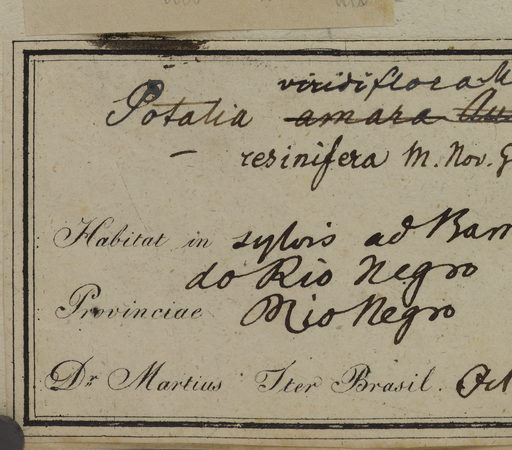 viridiflora M
Potalia amara Au
— resinifera M. Nov. G
Habitat in sylvis ad Barr
do Rio Negro
Provinciae Rio Negro
Dr Martius Iter Brasil. Oct